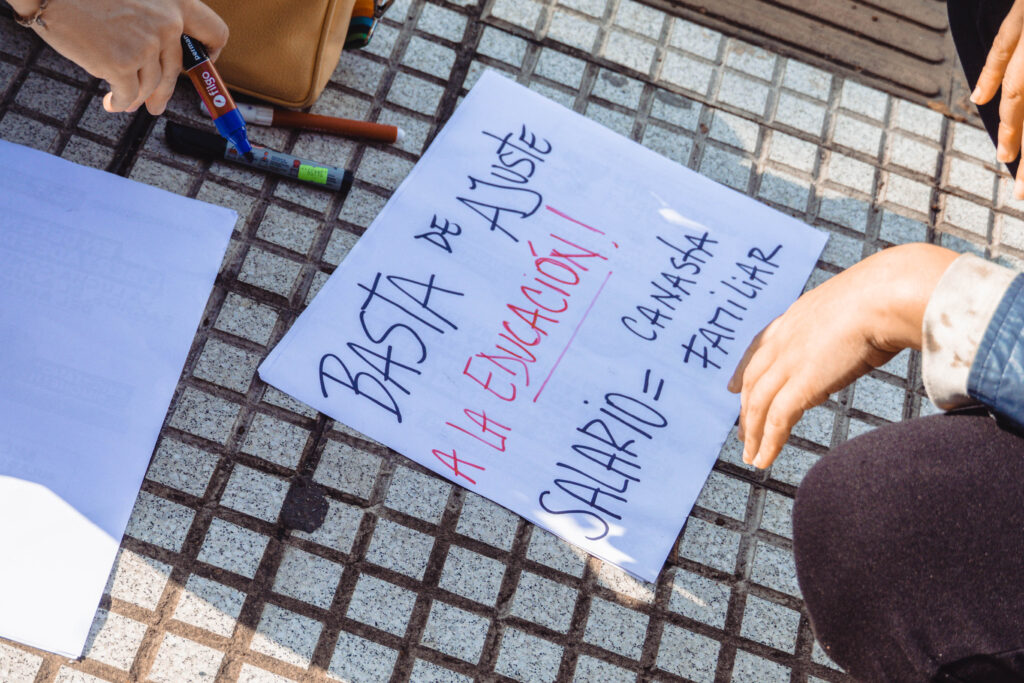 BASTA DE AJUSTE
A LA EDUCACIÓN!
SALARIO = CANASTA
FAMILIAR
filgo
permanent